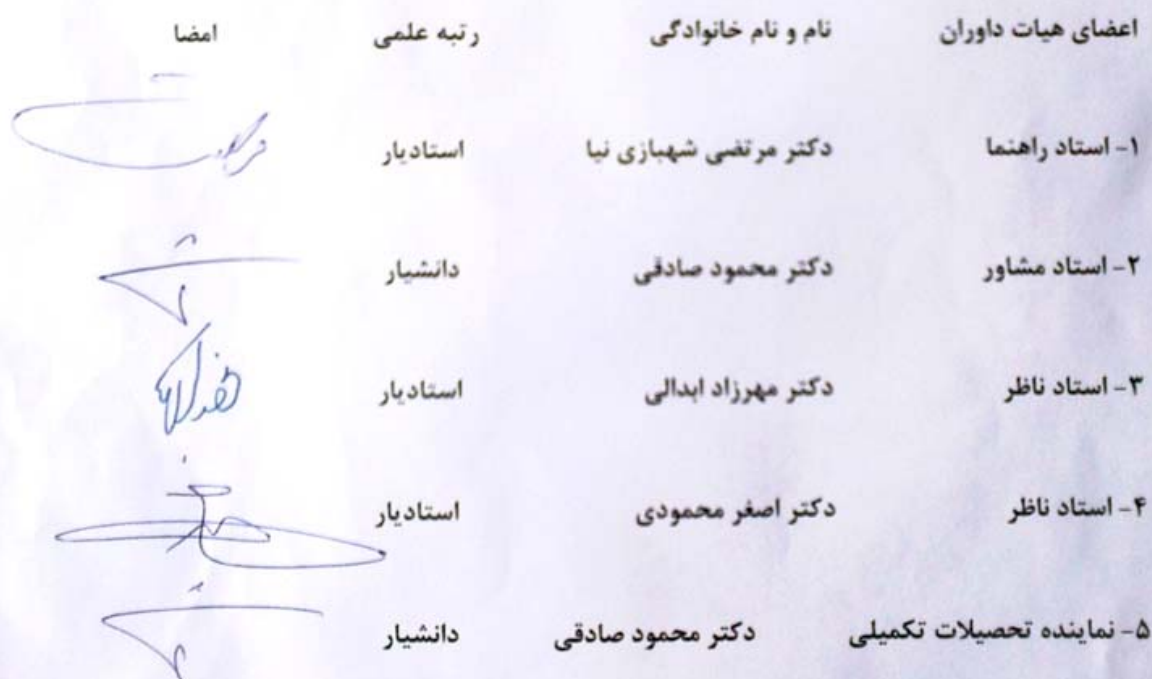 اعضای هیات داوران نام و نام خانوادگی رتبه علمی امضا
۱- استاد راهنما دکتر مرتضی شهبازی نیا استادیار
۲- استاد مشاور دکتر محمود صادقی دانشیار
۳- استاد ناظر دکتر مهرزاد ابدالی استادیار
۴- استاد ناظر دکتر اصغر محمودی استادیار
۵- نماینده تحصیلات تکمیلی دکتر محمود صادقی دانشیار